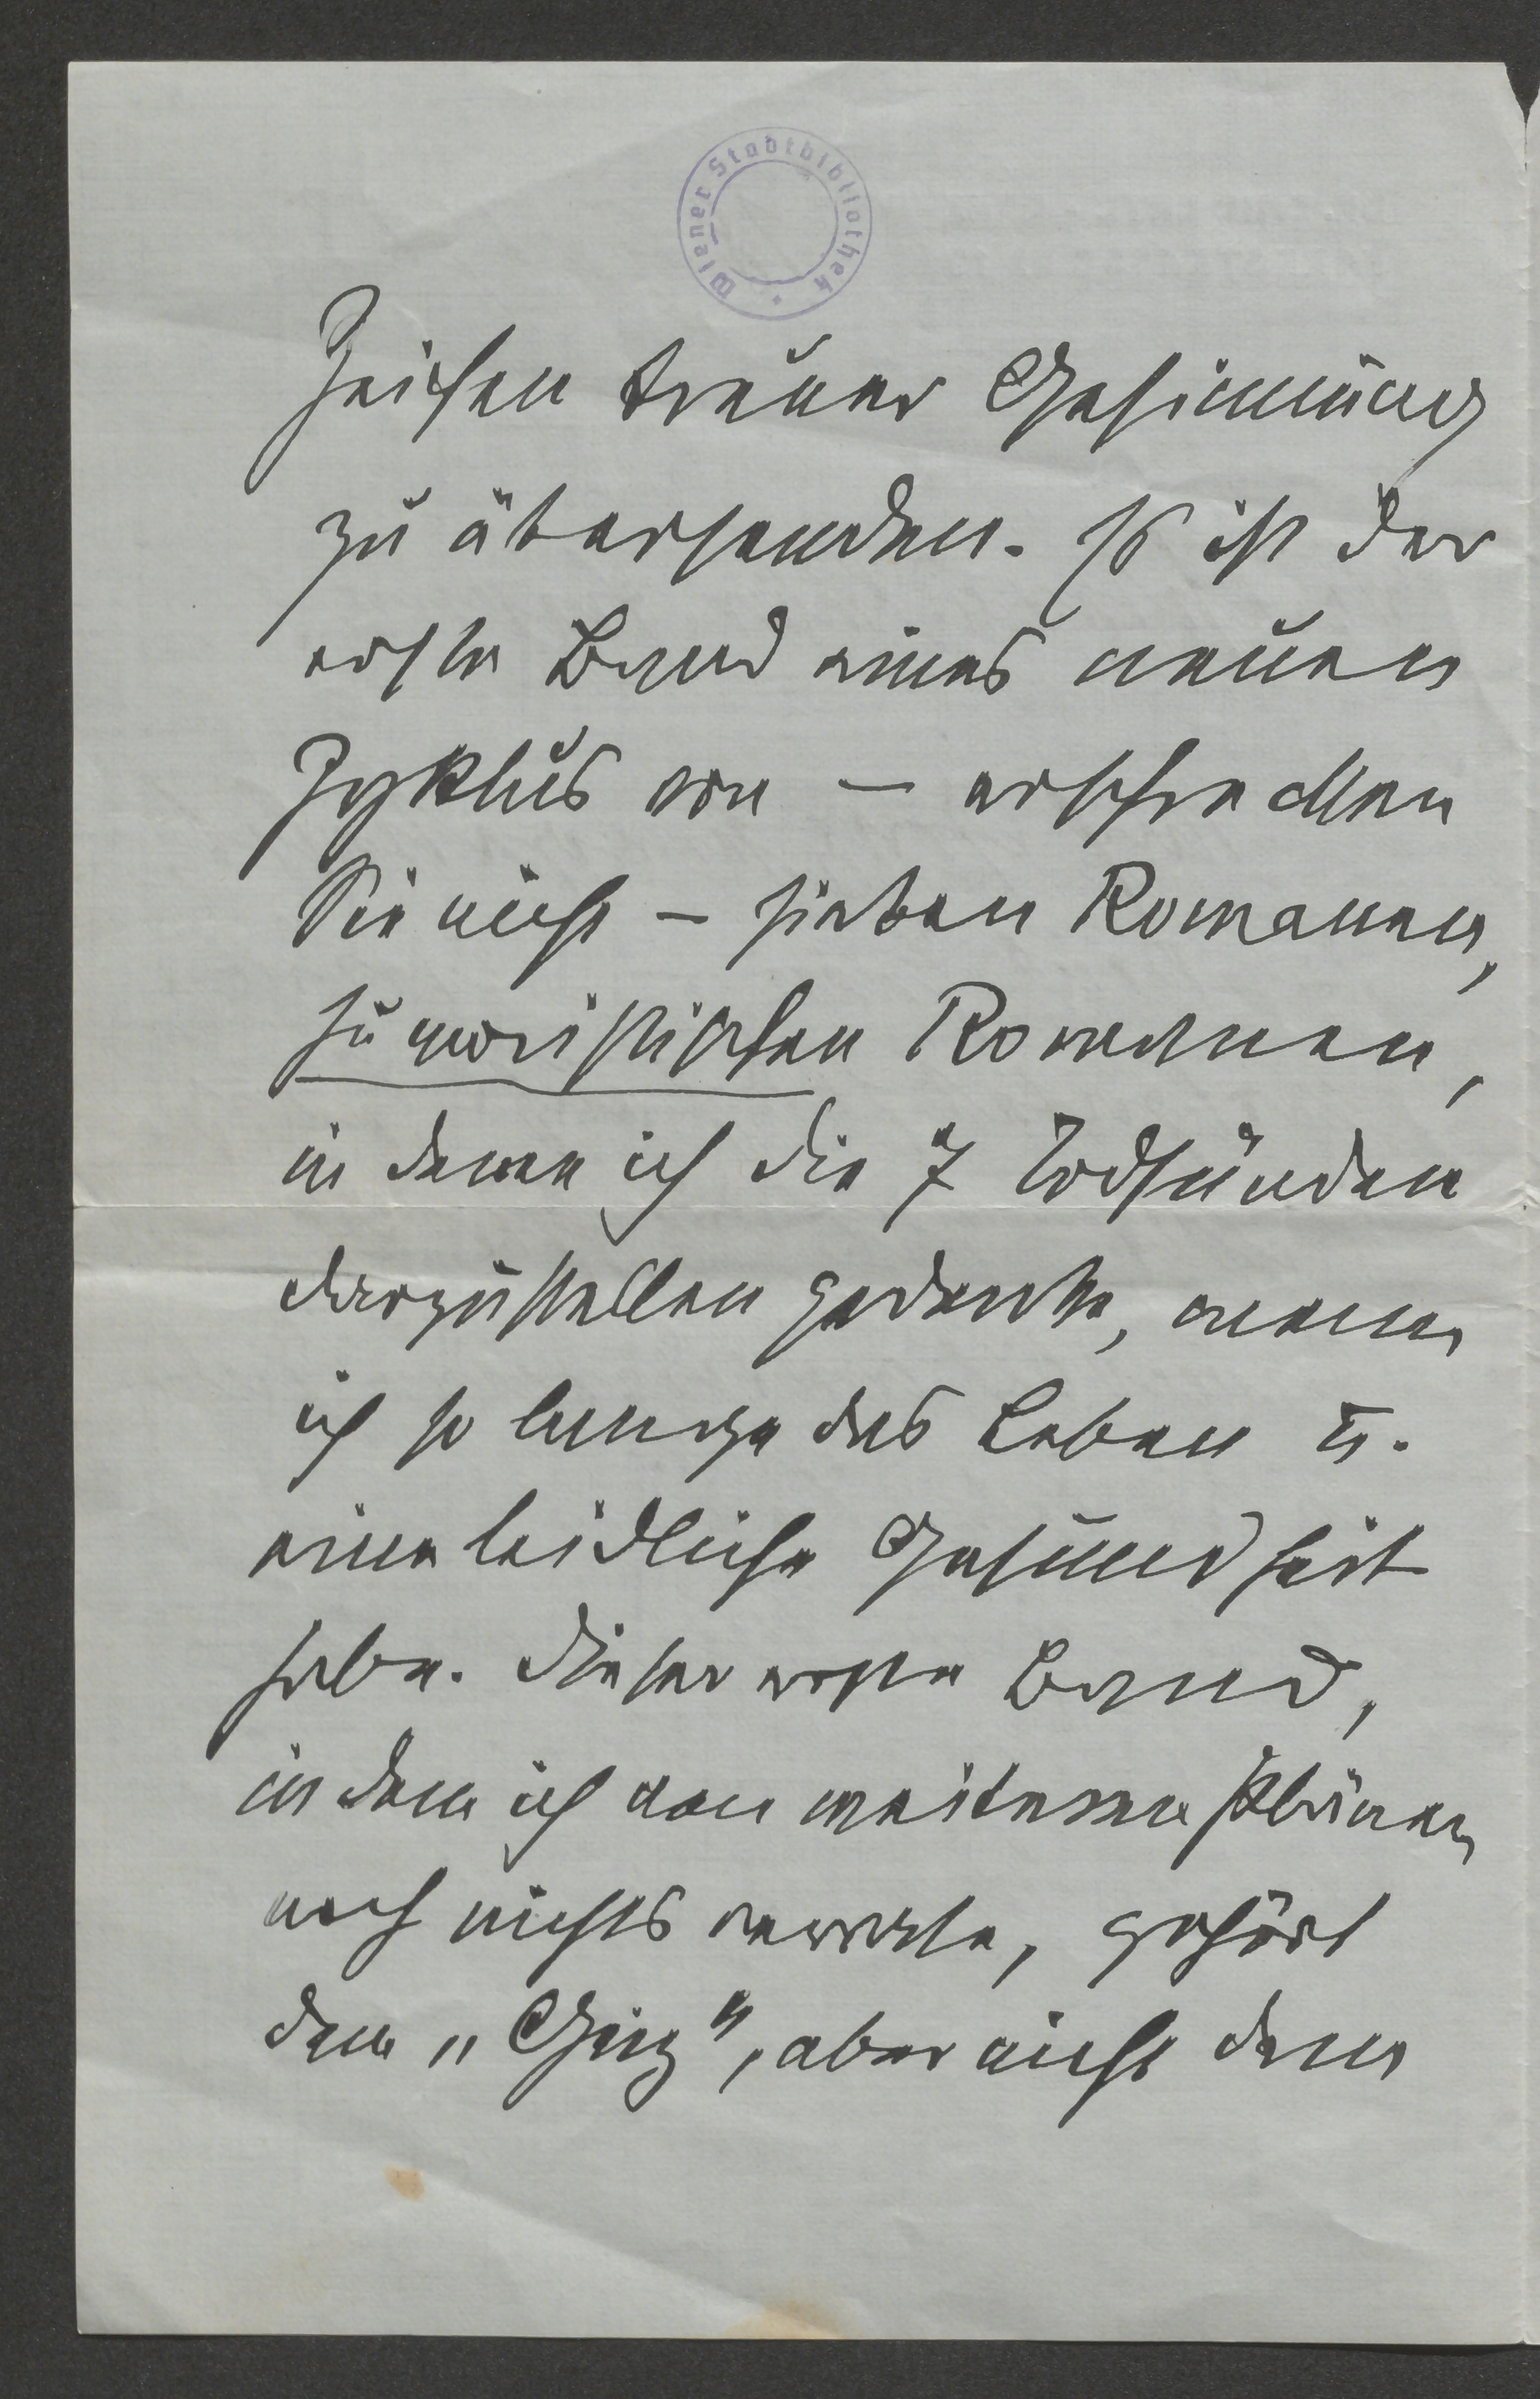 Wiener Stadtbibliothek
Zeichen treuer Gesinnung
zu übersenden. Es ist der
erste Band eines neuen
Zyklus von – erschrecken
Sie nicht – sieben Romanen,
humoristischen Romanen,
in denen ich die 7 Todsünden
darzustellen gedenke, wenn
ich so lange das Leben u.
eine leidliche Gesundheit
habe. Dieser erste Band,
in dem ich von weiteren Plänen
noch nichts verrate, gehört
dem „Geiz", aber nicht dem